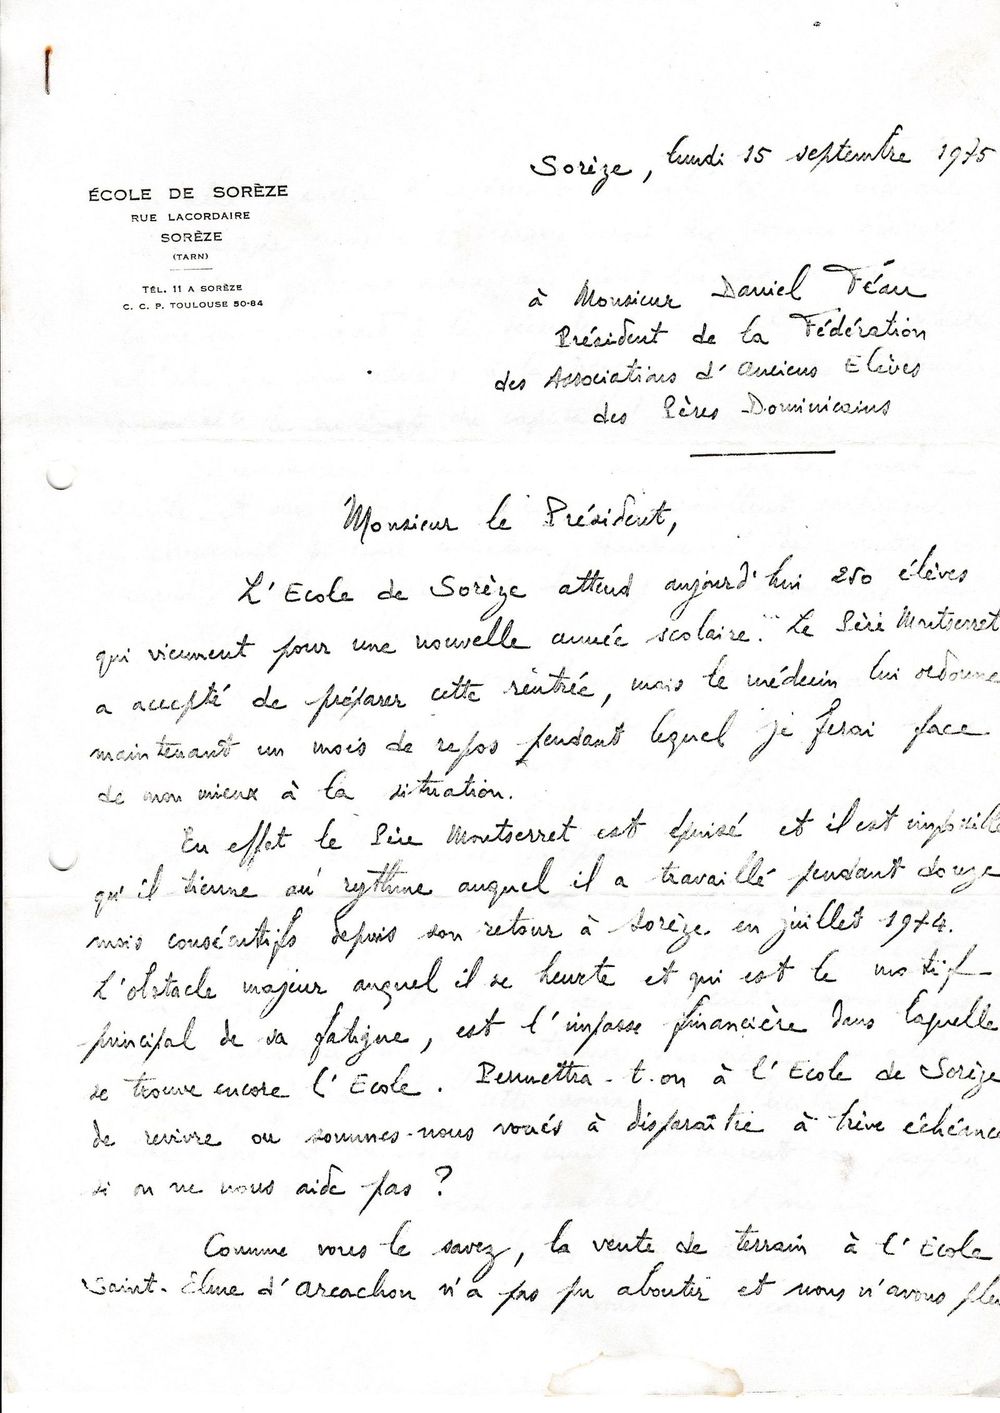 ÉCOLE DE SORÈZE
RUE LACORDAIRE
SORÈZE
(TARN)
TÉL. 11 A SORÈZE
C. C. P. TOULOUSE 50-84
Sorèze, lundi 15 septembre 1975
à Monsieur Daniel Féau
Président de la Fédération
des Associations d'Anciens Elèves
des Pères Dominicains
Monsieur le Président,
L'Ecole de Sorèze attend aujourd'hui 250 élèves
qui viennent pour une nouvelle année scolaire. Le Père Montserret
a accepté de préparer cette rentrée, mais le médecin lui ordonne
maintenant un mois de repos pendant lequel je ferai face
de mon mieux à la situation.
En effet le Père Montserret est épuisé et il est impossible
qu'il tienne au rythme auquel il a travaillé pendant douze
mois consécutifs depuis son retour à Sorèze en juillet 1974.
L'obstacle majeur auquel il se heurte et qui est le motif
principal de sa fatigue, est l'impasse financière dans laquelle
se trouve encore l'Ecole. Permettra-t-on à l'Ecole de Sorèze
de revivre ou sommes-nous voués à disparaître à brève échéance
si on ne nous aide pas ?
Comme vous le savez, la vente de terrain à l'Ecole
Saint-Elme d'Arcachon n'a pas pu aboutir et nous n'avons plu